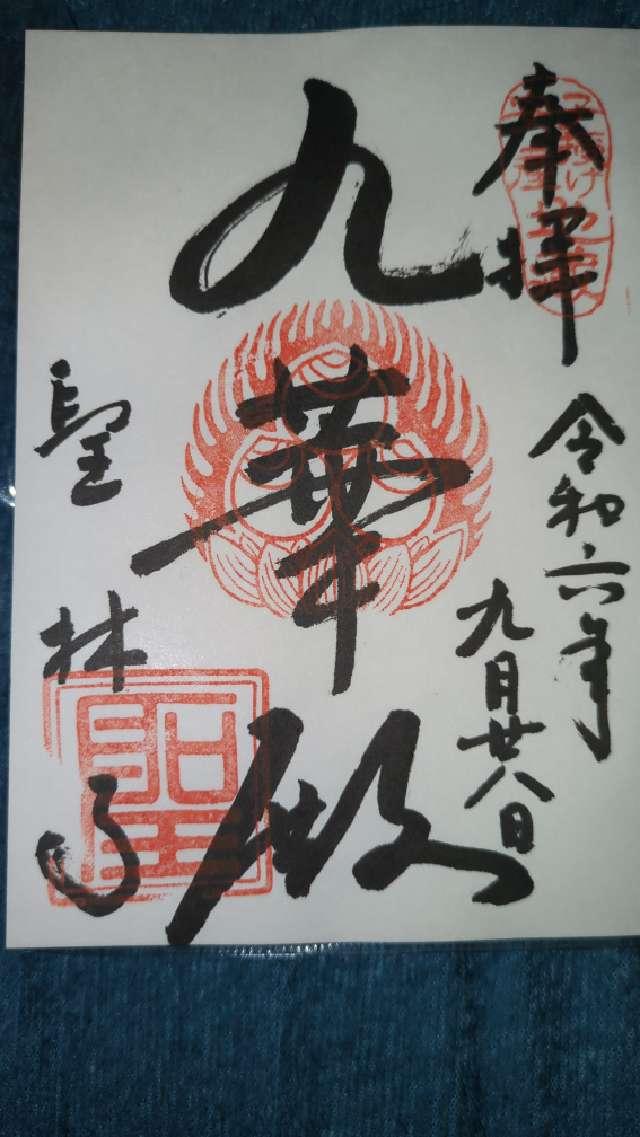 奉拝
令和六年
九月廿八日
九華殿
聖林寺
聖